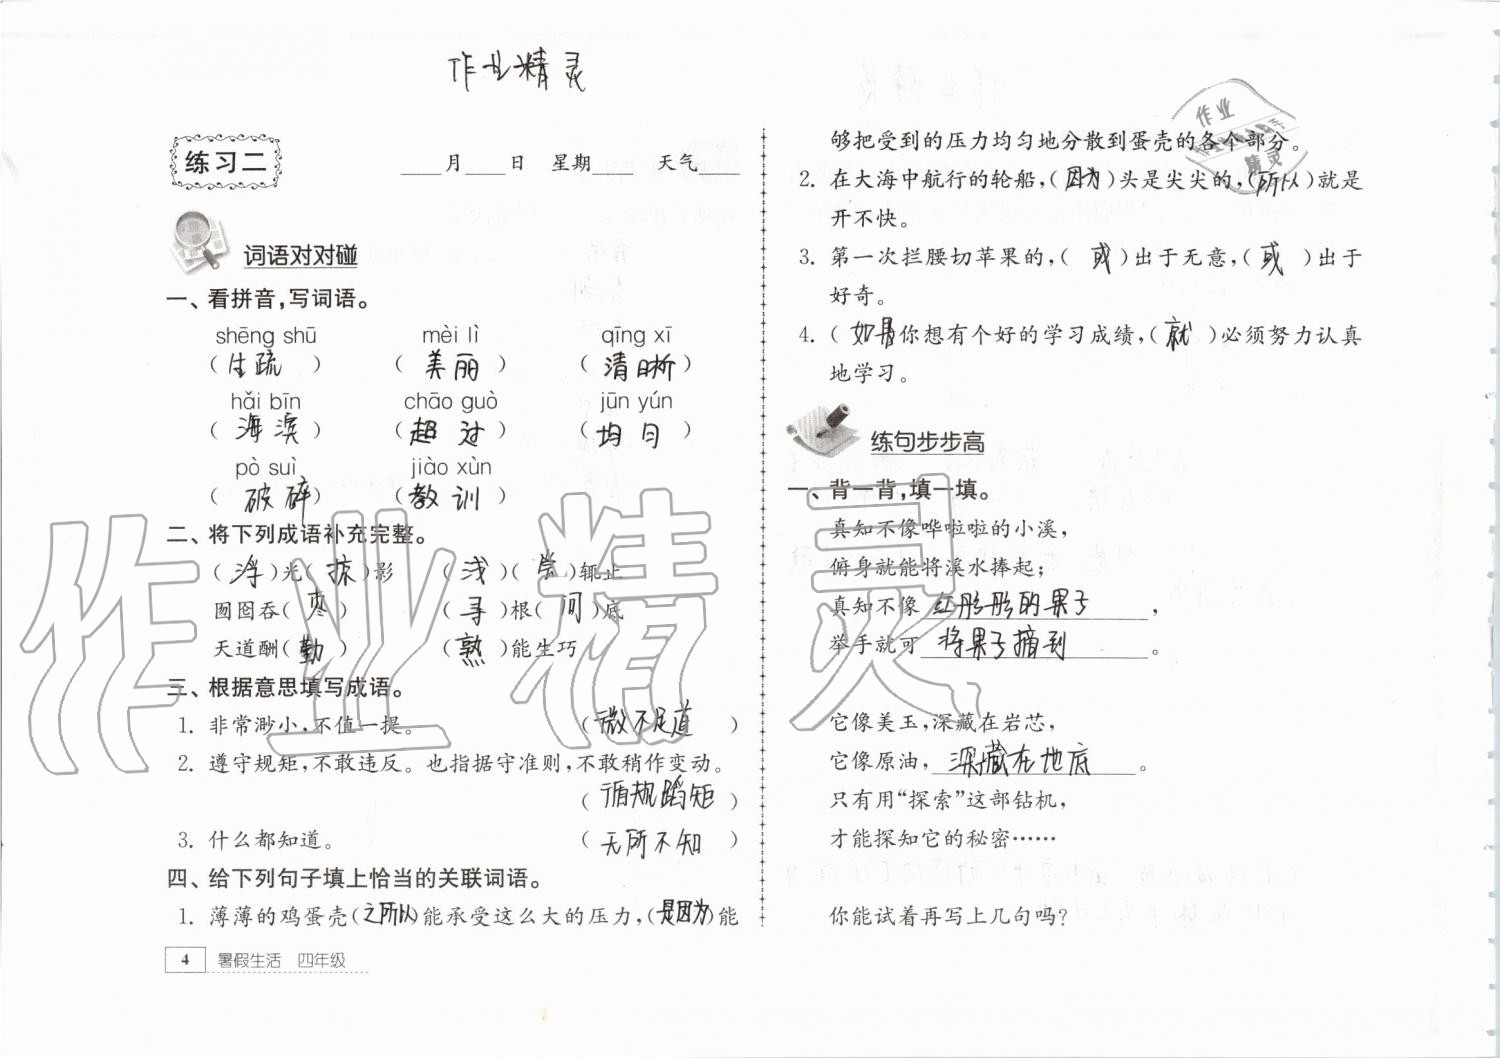 作业精灵
练习二
____月____日 星期____ 天气____
词语对对碰
一、看拼音,写词语。
shēng shū mèi lì qīng xī
(生疏) (美丽) (清晰)
hǎi bīn chāo guò jūn yún
(海滨) (超过) (均匀)
pò suì jiào xùn
(破碎) (教训)
二、将下列成语补充完整。
(浮)光(掠)影 (浅)(尝)辄止
囫囵吞(枣) (寻)根(问)底
天道酬(勤) (熟)能生巧
三、根据意思填写成语。
1. 非常渺小,不值一提。 (微不足道)
2. 遵守规矩,不敢违反。也指据守准则,不敢稍作变动。
(循规蹈矩)
3. 什么都知道。 (无所不知)
四、给下列句子填上恰当的关联词语。
1. 薄薄的鸡蛋壳(之所以)能承受这么大的压力,(是因为)能
4 暑假生活 四年级
够把受到的压力均匀地分散到蛋壳的各个部分。
2. 在大海中航行的轮船,(因为)头是尖尖的,(所以)就是
开不快。
3. 第一次拦腰切苹果的,(或)出于无意,(或)出于
好奇。
4. (如果你想有个好的学习成绩,(就)必须努力认真
地学习。
练句步步高
一、背一背,填一填。
真知不像哗啦啦的小溪,
俯身就能将溪水捧起;
真知不像红彤彤的果子,
举手就可将果子摘到。
它像美玉,深藏在岩芯,
它像原油,深藏在地底。
只有用“探索”这部钻机,
才能探知它的秘密……
你能试着再写上几句吗?
作业
精灵
作业精灵